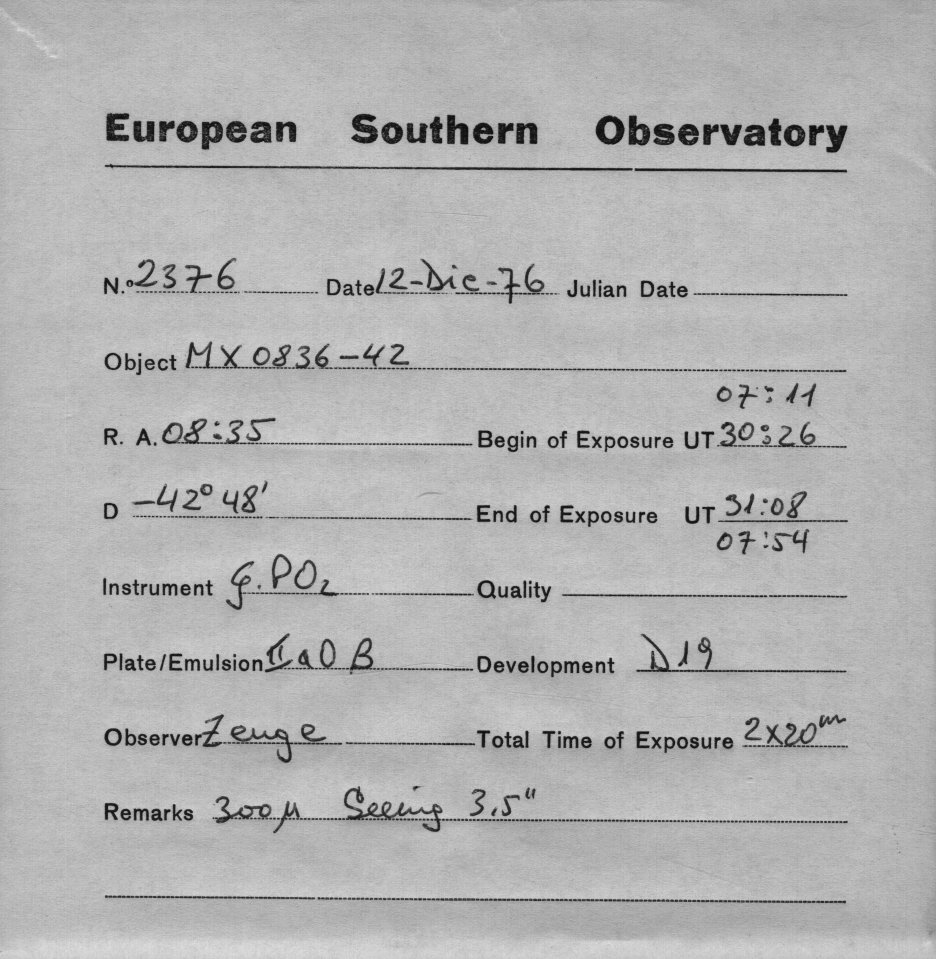 European Southern Observatory
N.º 2376 Date 12-Dic-76 Julian Date
Object MX 0836-42
07:11
R. A. 08:35 Begin of Exposure UT 30:26
D -42° 48' End of Exposure UT 31:08
07:54
Instrument G.PO2 Quality
Plate/Emulsion IIaO B Development D19
Observer Zeuge Total Time of Exposure 2x20m
Remarks 300µ Seeing 3.5"